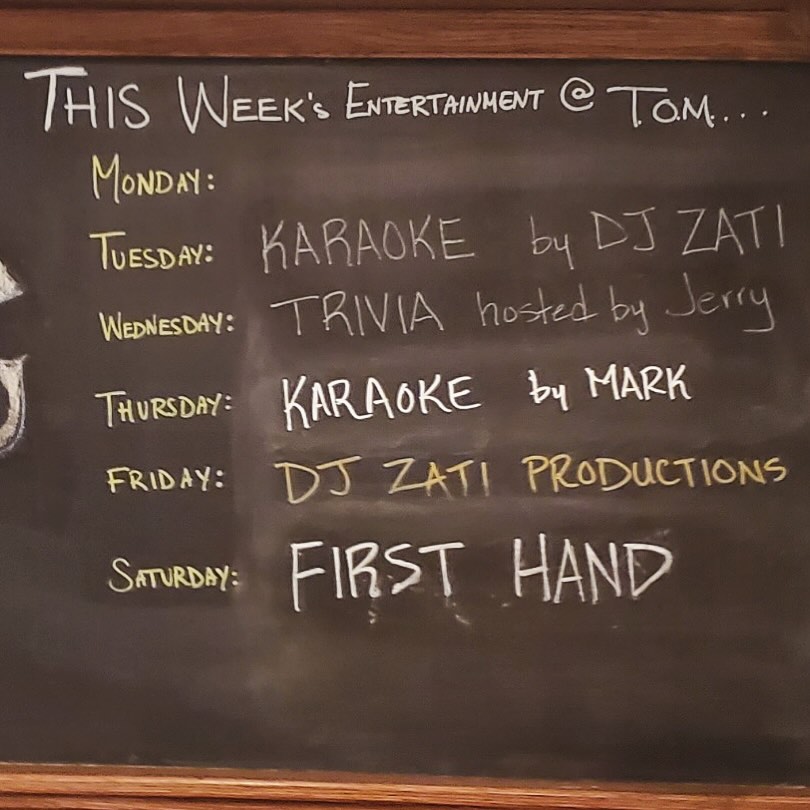 THIS WEEK'S ENTERTAINMENT @ T.O.M....
MONDAY:
TUESDAY: KARAOKE by DJ ZATI
WEDNESDAY: TRIVIA hosted by Jerry
THURSDAY: KARAOKE by MARK
FRIDAY: DJ ZATI PRODUCTIONS
SATURDAY: FIRST HAND